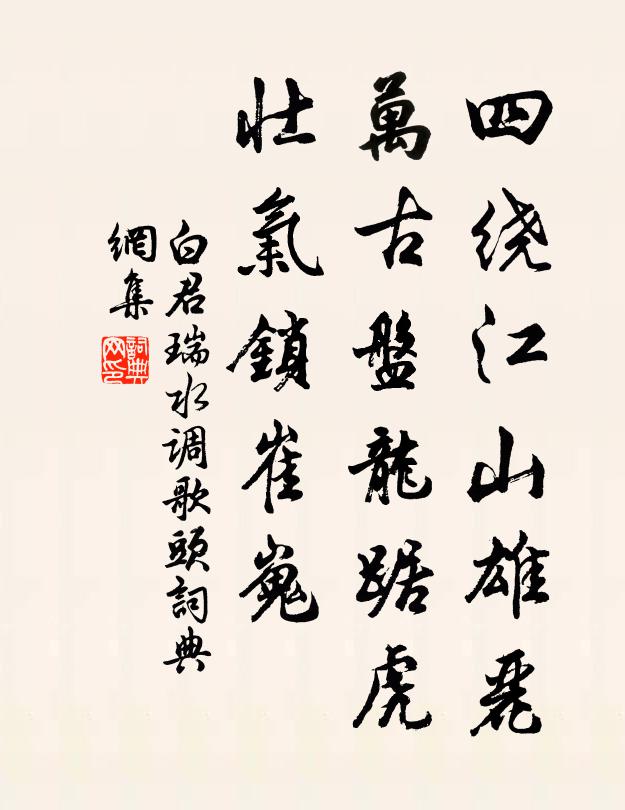 四绕江山雄麗
萬古盤龍踞虎
壮氣鎖崔嵬
白君瑞水调歌頭詞典
網集
詞典网印